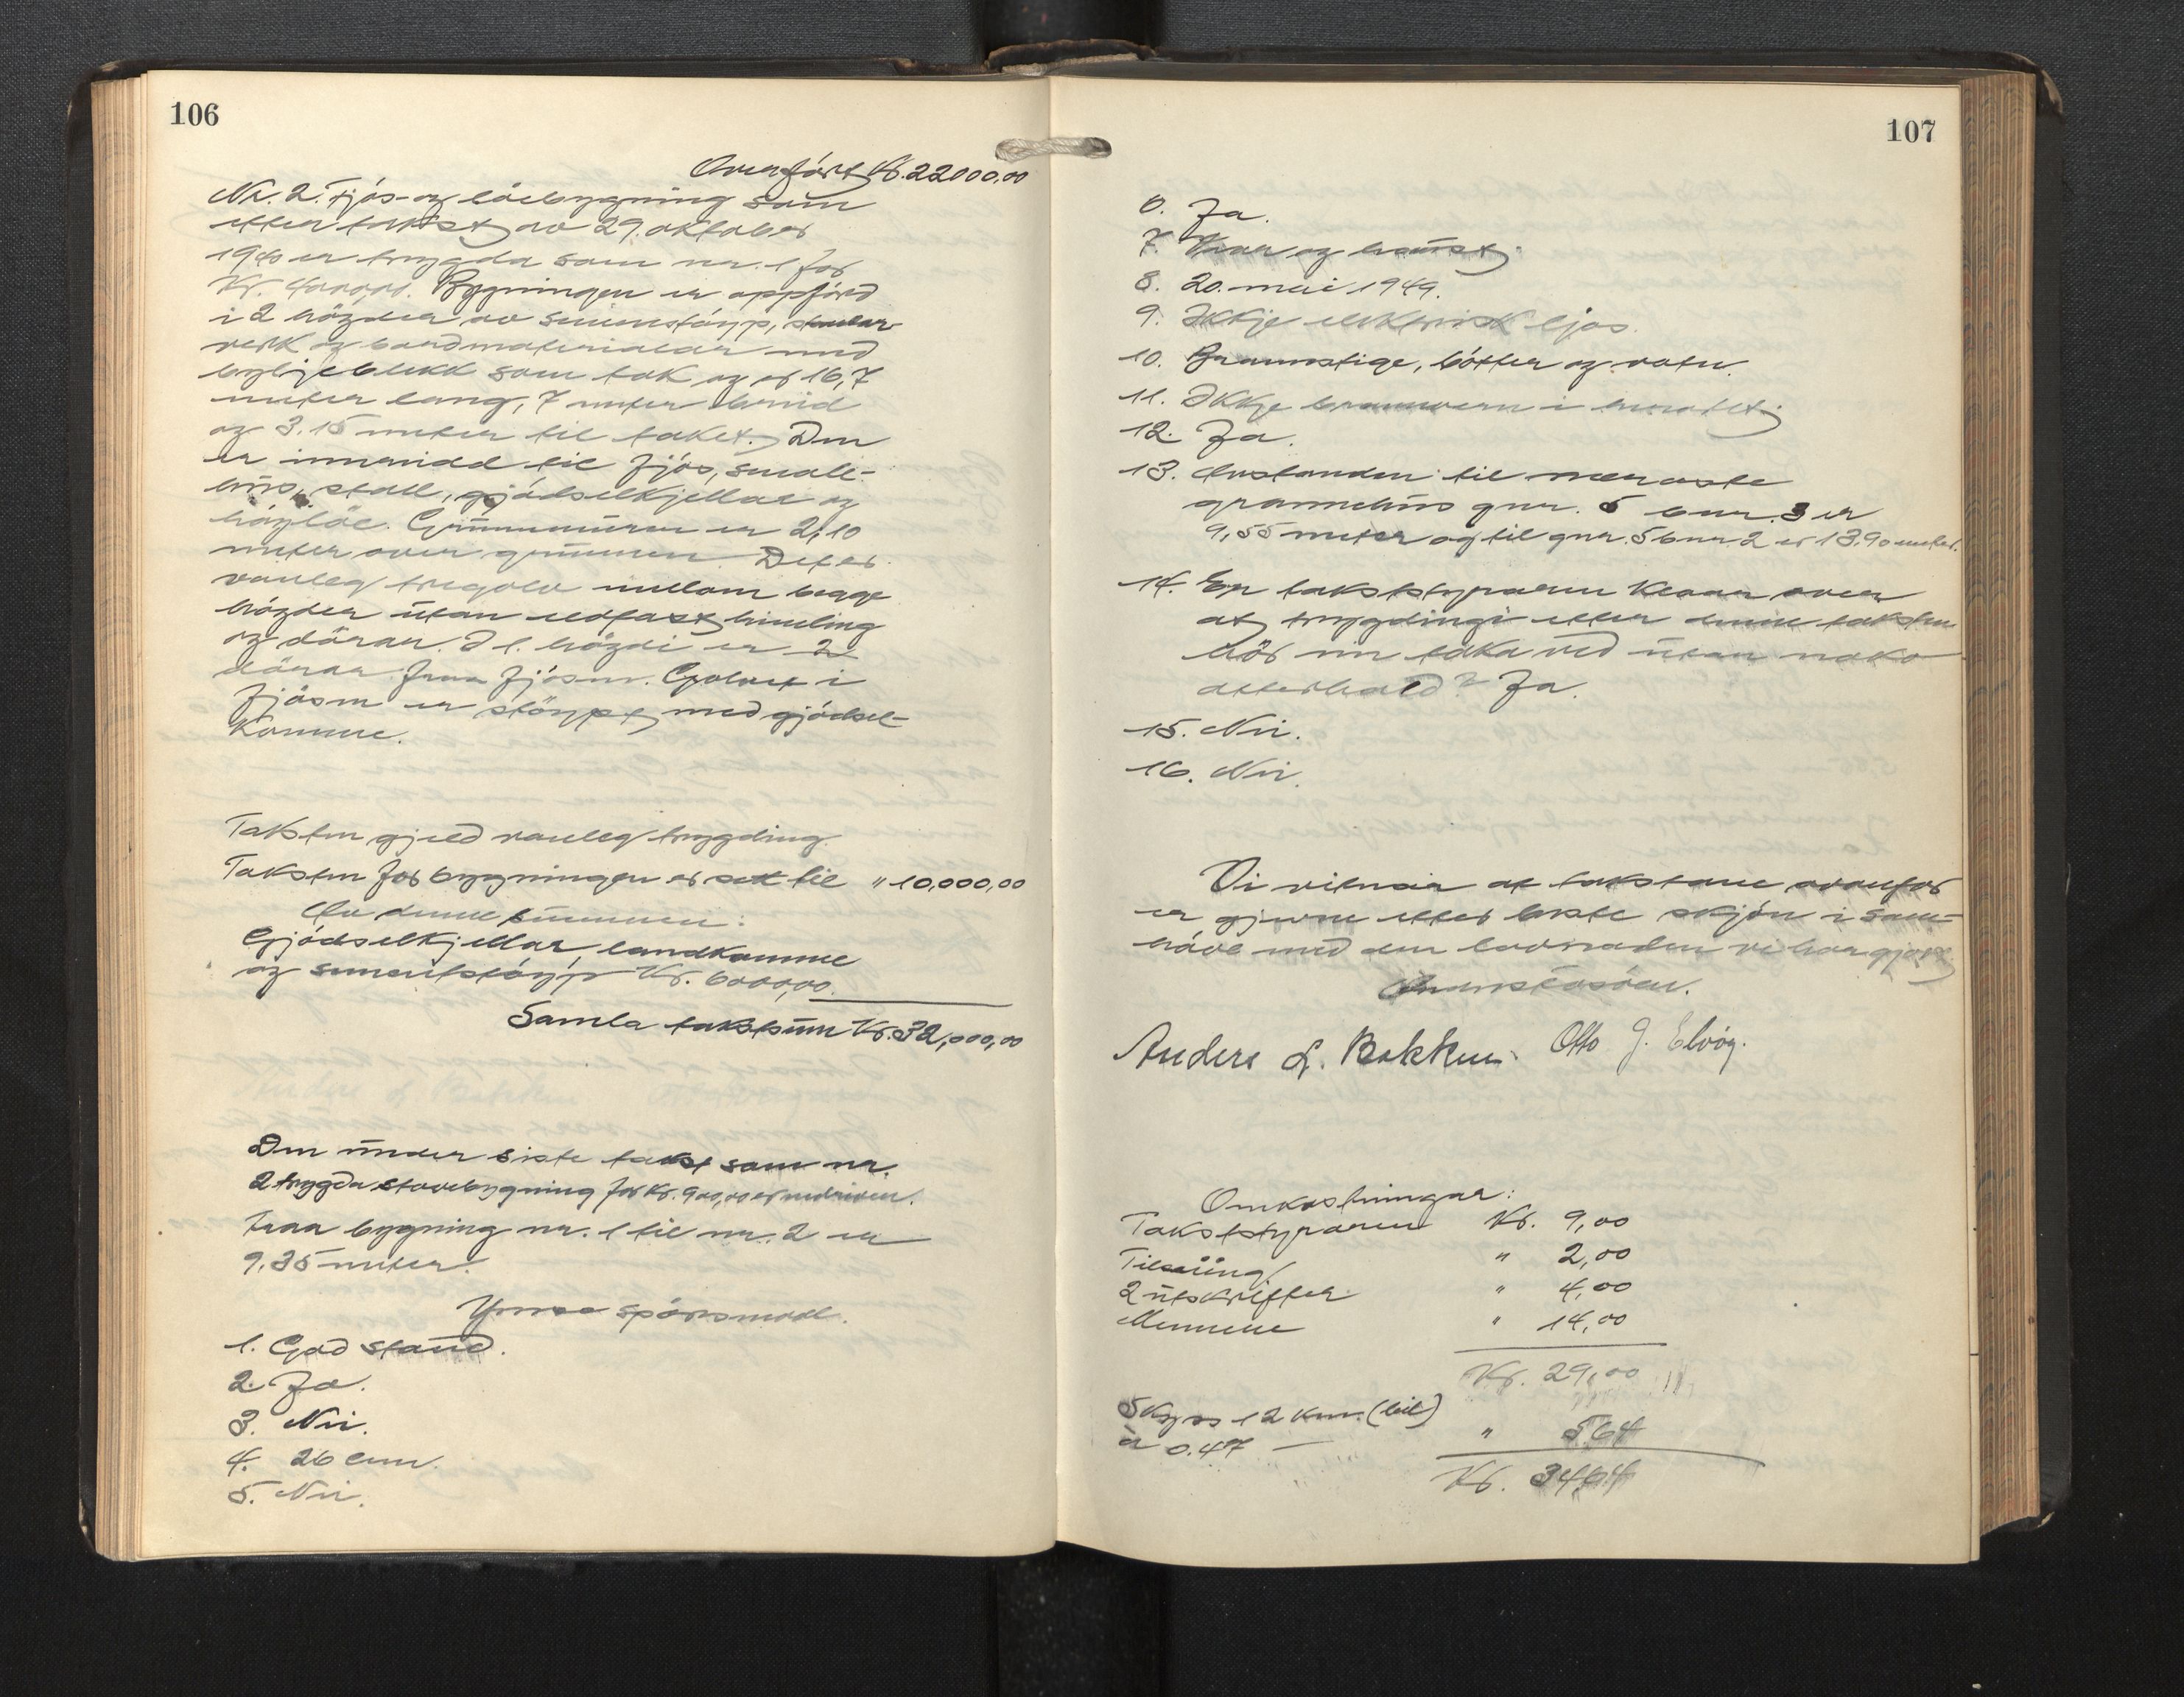 106
Overført Kr. 22000,00
Nr. 2. Fjós- og lóebygning som
etter takst av 29. oktober
1940 er trygda som nr. 1 for
Kr. 4000,00. Bygningen er oppförd
i 2 högder av sementstöyp, stender-
verk og bordmaterialar med
bylgjeblekk som tak og er 16,7
meter lang, 7 meter breid
og 3.15 meter til taket. Den
er innreidd til fjós, smale-
hus, stall, gjödselkjellar og
höylöe. Grunnmuren er 2,10
meter over grunnen. Det er
vanleg tregolv mellom begge
högder utan eldfast himling
og dörar. I 1. högdi er 2
dörar fraa fjósen. Golvet i
fjósen er stöypt med gjödsel-
komme.
Taksten gjeld vanleg trygding.
Taksten for bygningen er sett til " 10,000,00
Av denne summen:
Gjödselkjellar, landkomme
og sementstöyp Kr. 6000,00.
Samla takstsum Kr. 32,000,00
Den under siste takst som nr.
2 trygda stovebygning for Kr. 900,00 er nedriven.
Fraa bygning nr. 1 til nr. 2 er
9.35 meter.
Ymse spörsmaal.
1. God stand.
2. Ja.
3. Nei.
4. 26 cm.
5. Nei.
107
6. Ja.
7. Vaar og haust.
8. 20. mai 1949.
9. Ikkje elektrisk ljos.
10. Brannstige, bötter og vatn.
11. Ikkje brannvern i
12. Ja.
13. Avstanden til næraste
grannehus gnr. 5 bnr. 3 er
9,55 meter og til gnr. 5 bnr. 2 er 13,90 meter.
14. Er takststyraren klaar over
at trygdingi etter denne taksten
bör verta teke ved utan noko
atterhald? Ja.
15. Nei.
16. Nei.
Vi vitnar at takstane ovanfor
er gjevne etter beste skjön i sam-
høve med den lovnaden vi har gjort
Anders L. Bakken. Otto J. Elvöy.
Omkostningar:
Takststyraren Kr. 9,00
Tilsuing " 2,00
2 utskrifter " 4,00
Mennene " 14,00
Kr. 29,00
Skyss 12 km. (bil)
a 0.47 — " 5.64
Kr. 34,64